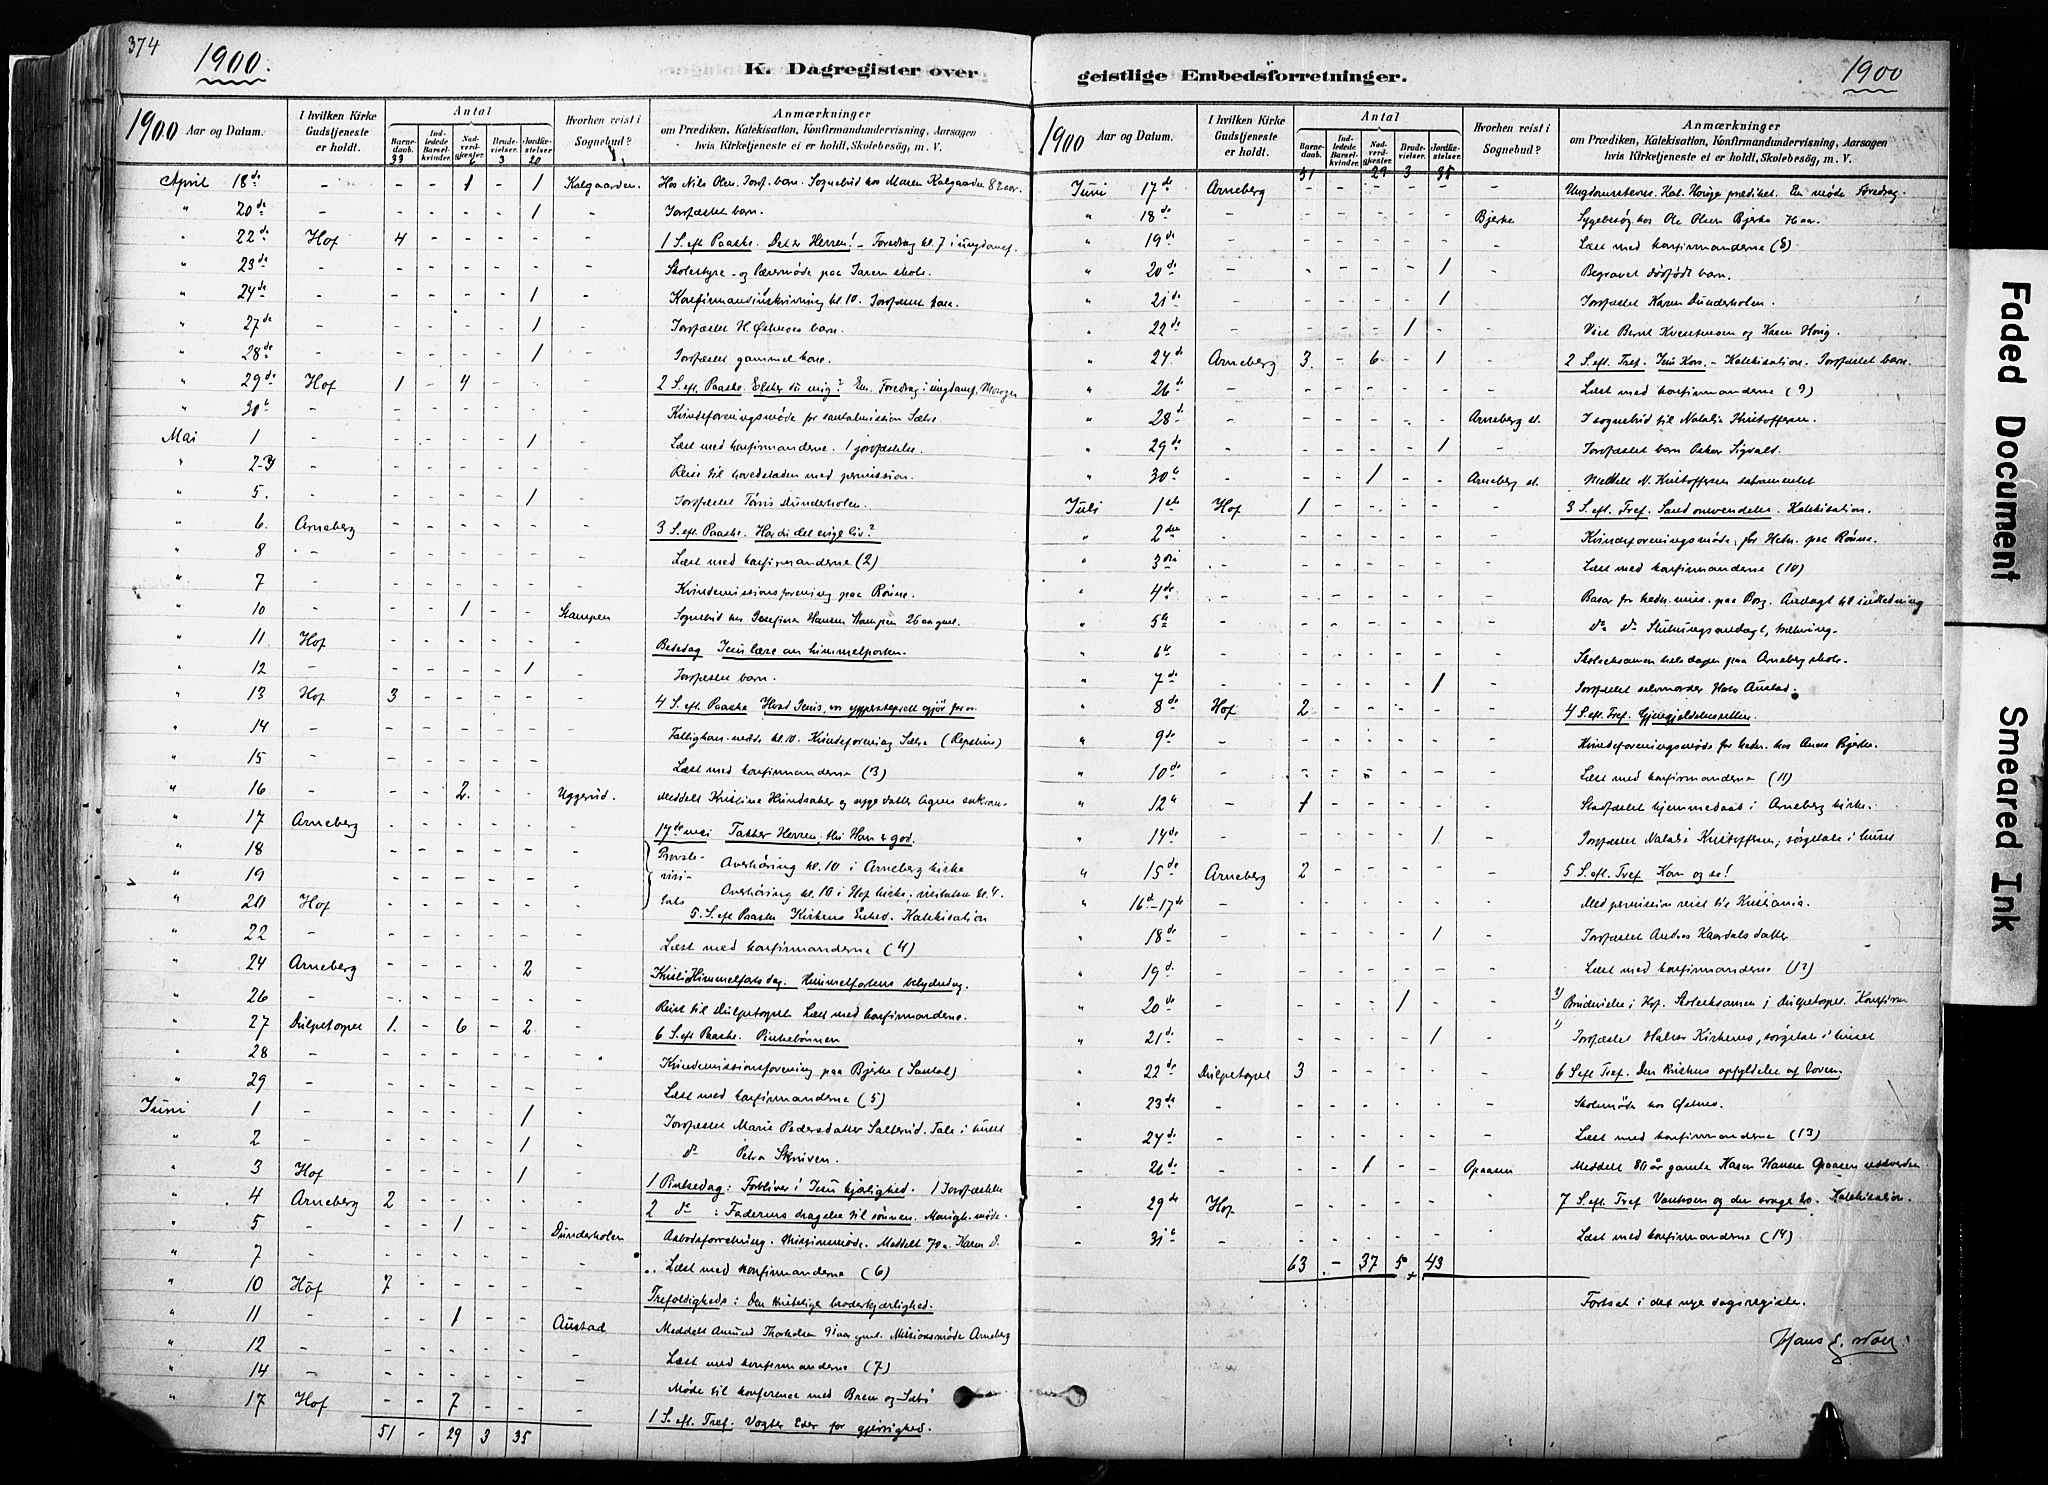 374
1900.
K. Dagregister over
geistlige Embedsforretninger.
1900
1900 Aar og Datum.
I hvilken Kirke Gudstjeneste er holdt.
Antal
Barnedaab. 33
Indledede Barselkvinder.
Nadverdgjester. 6
Brudevielser. 3
Jordfæstelser. 20
Hvorhen reist i Sognebud?
Anmærkninger
om Prædiken, Katekisation, Konfirmandundervisning, Aarsagen
hvis Kirketjeneste ei er holdt, Skolebesøg, m. V.
April 18de - - - 1 - 1 Kalgaarden. Hos Nils Olsen. Jordf. barn. Sognebud hos Maren Kalgaarden 82 aar.
" 20de - - - - - 1 - Jordfæstet barn.
" 22de Hof 4 - - - - - 1 S. eft Paaske. Det er Herren! - Foredrag kl. 7 i ungdomsf.
" 23de - - - - - - - Skolestyre- og læremøde paa Jaren skole.
" 24de - - - - - 1 - Konfirmandindskrivning kl. 10. Jordfæstet kone.
" 27de - - - - - 1 - Jordfæstet H. Østmoes barn.
" 28de - - - - - 1 - Jordfæstet gammel kone.
" 29de Hof 1 - 4 - - - 2 S. eft. Paaske. Elsker du mig? Em. Foredrag i ungdomsf.
" 30te - - - - - - - Kvindeforeningsmøde for santalmission Sætre.
Mai 1 - - - - - 1 - Læst med konfirmanderne. 1 jordfæstelse.
" 2-3 - - - - - - - Reise til hovedstaden med permission.
" 5. - - - - - 1 - Jordfæstet Tønis Dunderholen.
" 6. Arneberg - - - - - - 3 S. eft. Paaske. Har du det evige liv?
" 8 - - - - - - - Læst med konfirmanderne (2)
" 7 - - - - - - - Kvindemissionsforening paa Rønne.
" 10 - - - 1 - - Stampen Sognebud hos Josefine Hansen Stampen 26 aar gml.
" 11 Hof - - - - - - Bededag Jesu lære om himmelporten.
" 12 - - - - - 1 - Jordfæstet barn.
" 13 Hof 3 - - - - - 4 S. eft Paaske Hvad Jesus, vor ypperstepræst gjør for os.
" 14 - - - - - - - Fattigkom. møde kl. 10. Kvindeforening Sætre
" 15 - - - - - - - Læst med konfirmanderne (3)
" 16 - - - 2. - - Uggerud. Meddelt Kristine Hundsæter og syge datter Agnes sakram-
" 17 Arneberg - - - - - - 17de mai Takker Herren, thi Han er god.
" 18 - - - - - - Provste- Overhøring kl. 10 i Arneberg kirke
" 19 - - - - - - - visi- Overhøring kl. 10 i Hof kirke, visitatsen kl. 4.
" 20 Hof - - - - - - tats 5. S. eft Paaske Kirkens Enhed. Katekisation
" 22 - - - - - - - Læst med konfirmanderne (4)
" 24 Arneberg - - - - 2 - Kristi Himmelfarts dag. Himmelfartens betydning.
" 26 - - - - - - - Reist til Dulpetorpet Læst med konfirmanderne.
" 27 Dulpetorpet 1. - 6 - 2 - 6 S. eft Paaske. Pinsebønnen
" 28 - - - - - - - Kvindemissionsforening paa Bjerke (Santal)
" 29 - - - - - - - Læst med konfirmanderne (5)
Juni 1 - - - - - 1 - Jordfæstet Marie Pedersdatter Sætterud. Tale i huset
" 2 - - - - - 1 - do Petra Skriven.
" 3 Hof - - - - 1 - 1 Pinsedag: Forbliver i Jesu kjærlighed. 1 Jordfæstelse
" 4 Arneberg 2 - - - - - 2 do : Faderens dragelse til sønnen. Menigh. møde.
" 5 - - - 1 - - Dunderholen Aabodsforretning. Missionsmøde. Meddelt 70 a. Karen D.
" 7 - - - - - - - Læst med konfirmanderne (6)
" 10 Hof 7 - - - - - Trefoldigheds: Den kristelige broderkjærlighed.
" 11 - - - 1 - - Austad Meddelt Amund Thorkelsen 91 aar gml. Missionsmøde Arneberg
" 12 - - - - - - - Læst med konfirmanderne (7)
" 14 - - - - - - - Møde til konference med Brem og Sæbø
" 17 Hof - - 7 - - - 1 S. eft. Tref. Vogter Eder for gjerrighed.
51 - 29 3 35
1900 Aar og Datum.
I hvilken Kirke Gudstjeneste er holdt.
Antal
Barnedaab. 51
Indledede Barselkvinder.
Nadverdgjester. 29
Brudevielser. 3
Jordfæstelser. 35
Hvorhen reist i Sognebud?
Anmærkninger
om Prædiken, Katekisation, Konfirmandundervisning, Aarsagen
hvis Kirketjeneste ei er holdt, Skolebesög, m. V.
Juni 17de Arneberg - - - - - - Ungdomsstevne. Kat. Horige prædiket. Em møde Foredrag.
" 18de - - - - - - Bjerke Sygebesøg hos Ole Olsen Bjerke Haa.
" 19de - - - - - - - Læst med konfirmanderne (8)
" 20de - - - - - 1 - Begravet dødfødt barn.
" 21de - - - - - 1 - Jordfæstet Karen Dunderholen.
" 22de - - - - 1 - - Viet Bernt Kvestuesen og Karen Honig.
" 24de Arneberg 3. - 6 - 1 - 2 S. eft. Tref. Jesu Kors. - Katekisation. Jordfæstet barn.
" 26de - - - - - - - Læst med konfirmanderne (9)
" 28de - - - - - - Arneberg st. I sognebud til Natalia Kristoffersen.
" 29de - - - - - 1 - Jordfæstet barn Oskar Sigvald.
" 30te - - - 1 - - Arneberg st. Meddelt N. Kristoffersen sakramentet
Juli 1ste Hof 1 - - - - - 3 S. eft. Tref. Sand omvendelse. Katekisation.
" 2den - - - - - - - Kvindeforeningsmøde for Hedn. paa Rønne.
" 3die - - - - - - - Læst med konfirmanderne (10)
" 4de - - - - - - - Basar for hedn. miss. paa Borg. Andagt til indledning
" 5te - - - - - - - do do Slutningsandagt,
" 6te - - - - - - - Skoleeksamen hele dagen paa Arneberg skole.
" 7de - - - - - 1 - Jordfæstet selvmorder Hans Austad.
" 8de Hof 2 - - - - - 4 S. eft. Tref. Gjengjeldelsesretten.
" 9de - - - - - - - Kvindeforeningsmøde for hedn. hos Anne Bjerke.
" 10de - - - - - - - Læst med konfirmanderne (11)
" 12te - 1 - - - - - Stadfæstet hjemmedaab i Arneberg kirke.
" 14de - - - - - 1 - Jordfæstet Natalia Kristoffersen, sørgetale i huset
" 15de Arneberg 2 - - - - - 5 S. eft. Tref Kom og se!
" 16de-17de - - - - - - - Med permission reist til Kristiania.
" 18de - - - - - 1 - Jordfæstet Andrea Kaardals datter
" 19de - - - - - - - Læst med konfirmanderne (12)
" 20de - - - - 1 - - Brudevielse i Hof. Skoleeksamen i Dulpetorpet. Konfirm
" 21de - - - - - 1 - Jordfæstet Halvor Kirkemo, sørgetale i huset
" 22de Dulpetorpet 3 - - - - - 6 S eft Tref. Den kristnes opfyldelse af loven.
" 23de - - - - - - - Skolemøde hos Østmo.
" 24de - - - - - - - Læst med konfirmanderne (13)
- 26de - - - 1 - - Opaasen Meddelt 80 år gamle Karen Hansen Opaasen nadverden
- 29de Hof - - - - - " 7 S. eft. Tref Vantroen og den svage tro. Katekisation.
- 31te - - - - - - - Læst med konfirmanderne (14)
63 - 37 5 43
Fortsat i det nye dagsregister.
Hans E.
Faded Document
Smeared Ink